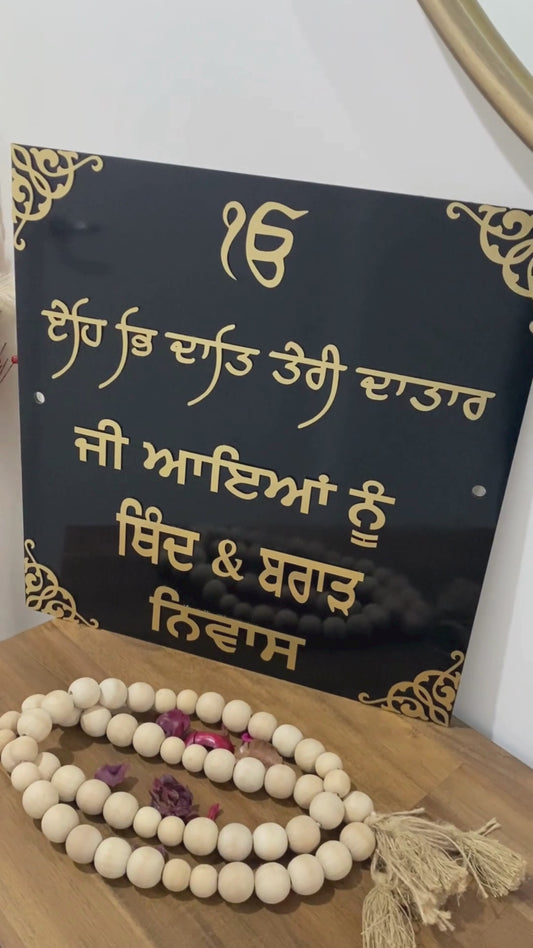 ੴ
ਏਹਿ ਭਿ ਦਾਤਿ ਤੇਰੀ ਦਾਤਾਰ
ਜੀ ਆਇਆਂ ਨੂੰ
ਥਿੰਦ & ਬਰਾੜ
ਨਿਵਾਸ